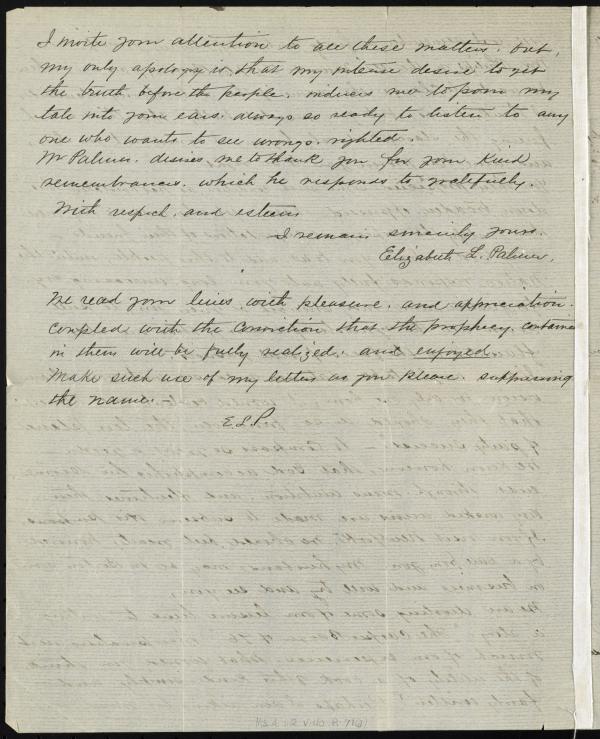 I invite your attention to all these matters, but,
my only apology is that my intense desire to get
the truth before the people, induces me to pour my
tale into your ears, always so ready to listen to any
one who wants to see wrongs, righted.
Mr Palmer, desires me to thank you for your kind
remembrances, which he responds to gratefully.
With respect, and esteem
I remain sincerely yours.
Elizabeth L. Palmer.
We read your lines with pleasure, and appreciation.
coupled with the conviction that the prophecy, contained
in them will be fully realized, and enjoyed.
Make such use of my letters as you please, suppressing
the name. —
E.L.P.